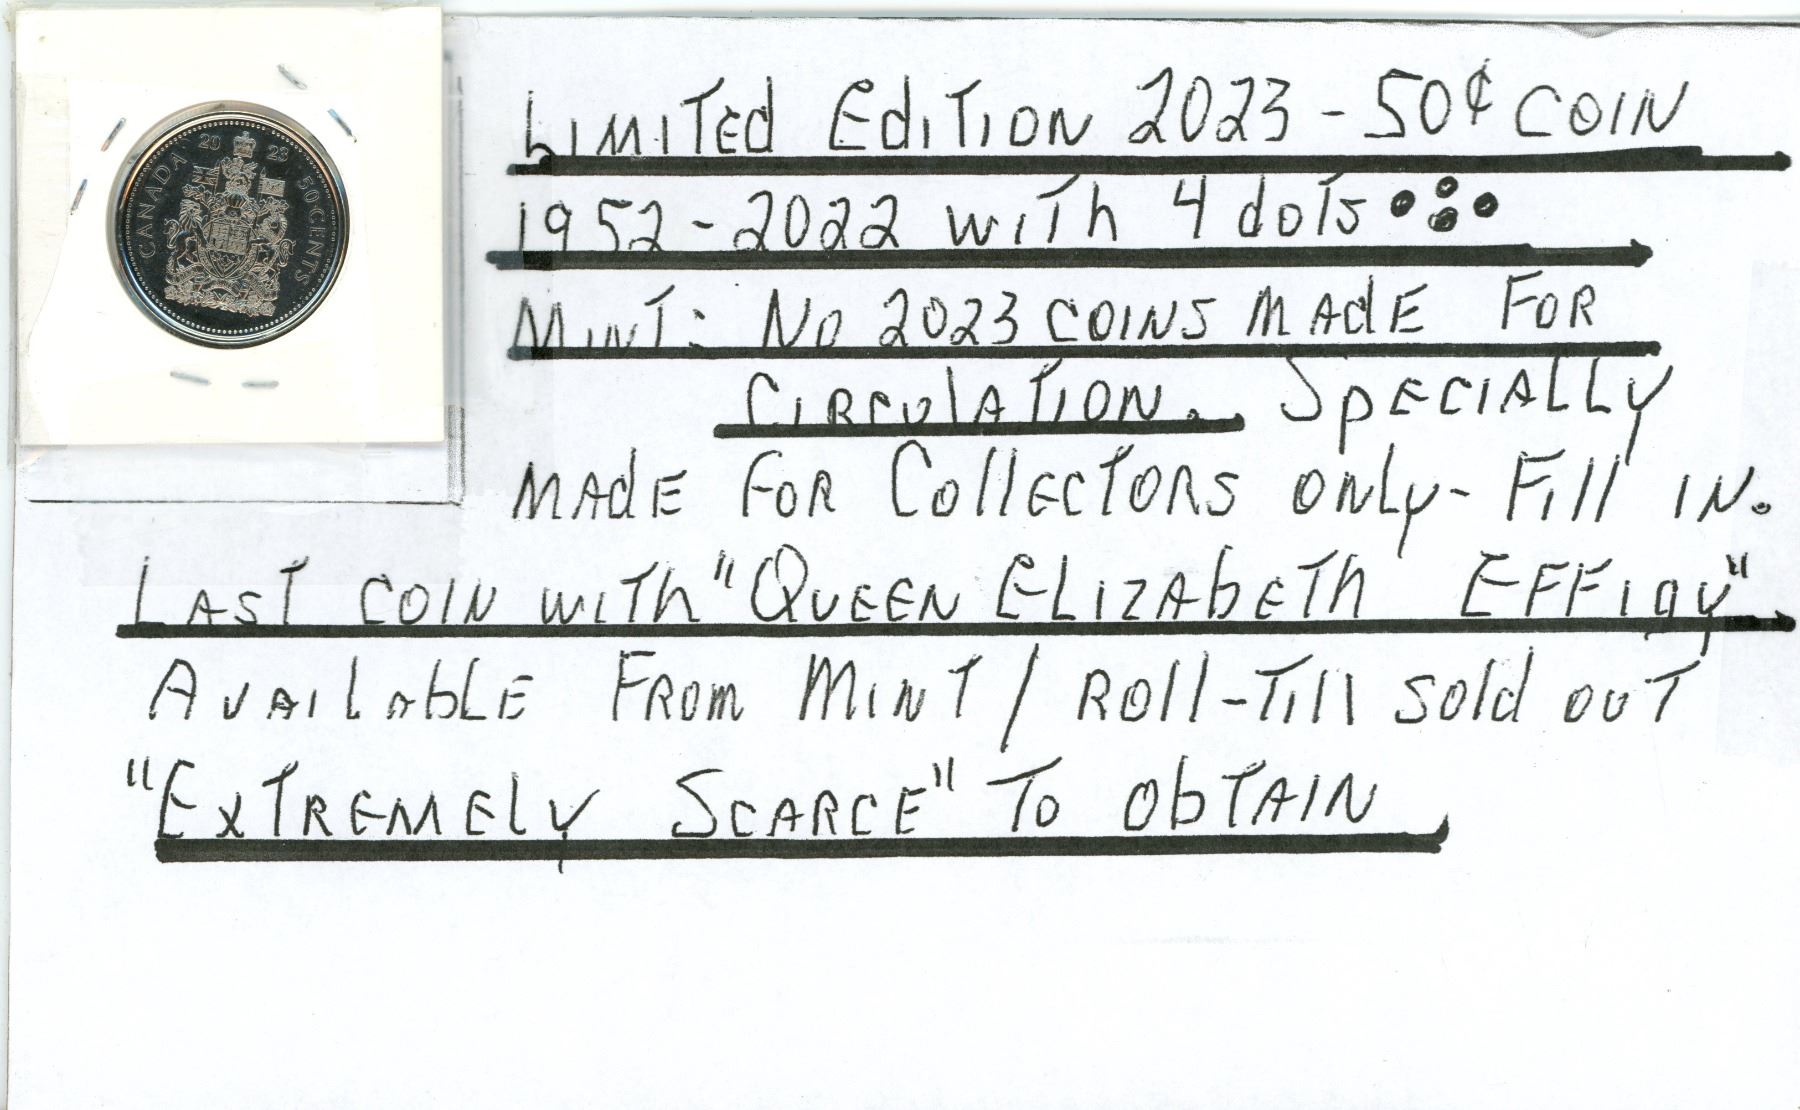 CANADA 20 23 50 CENTS
LIMITED EDITION 2023 - 50¢ COIN
1952 - 2022 WITH 4 dOTS
MINT: NO 2023 COINS MADE FOR
CIRCULATION. SPECIALLY
MADE FOR COLLECTORS ONLY - FILL IN.
LAST COIN WITH "QUEEN ELIZABETH EFFIGY"
AVAILABLE FROM MINT / ROLL - TILL SOLD OUT
"EXTREMELY SCARCE" TO OBTAIN